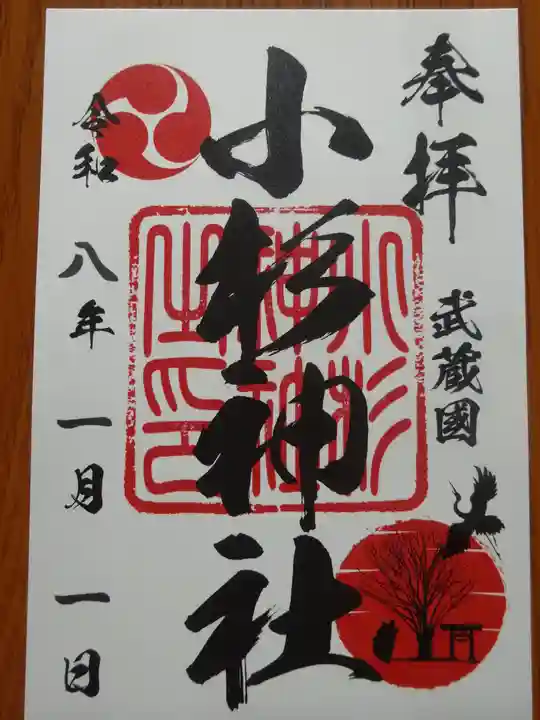 奉拝
武蔵國
小杉神社
小杉神社之印
令和八年一月一日